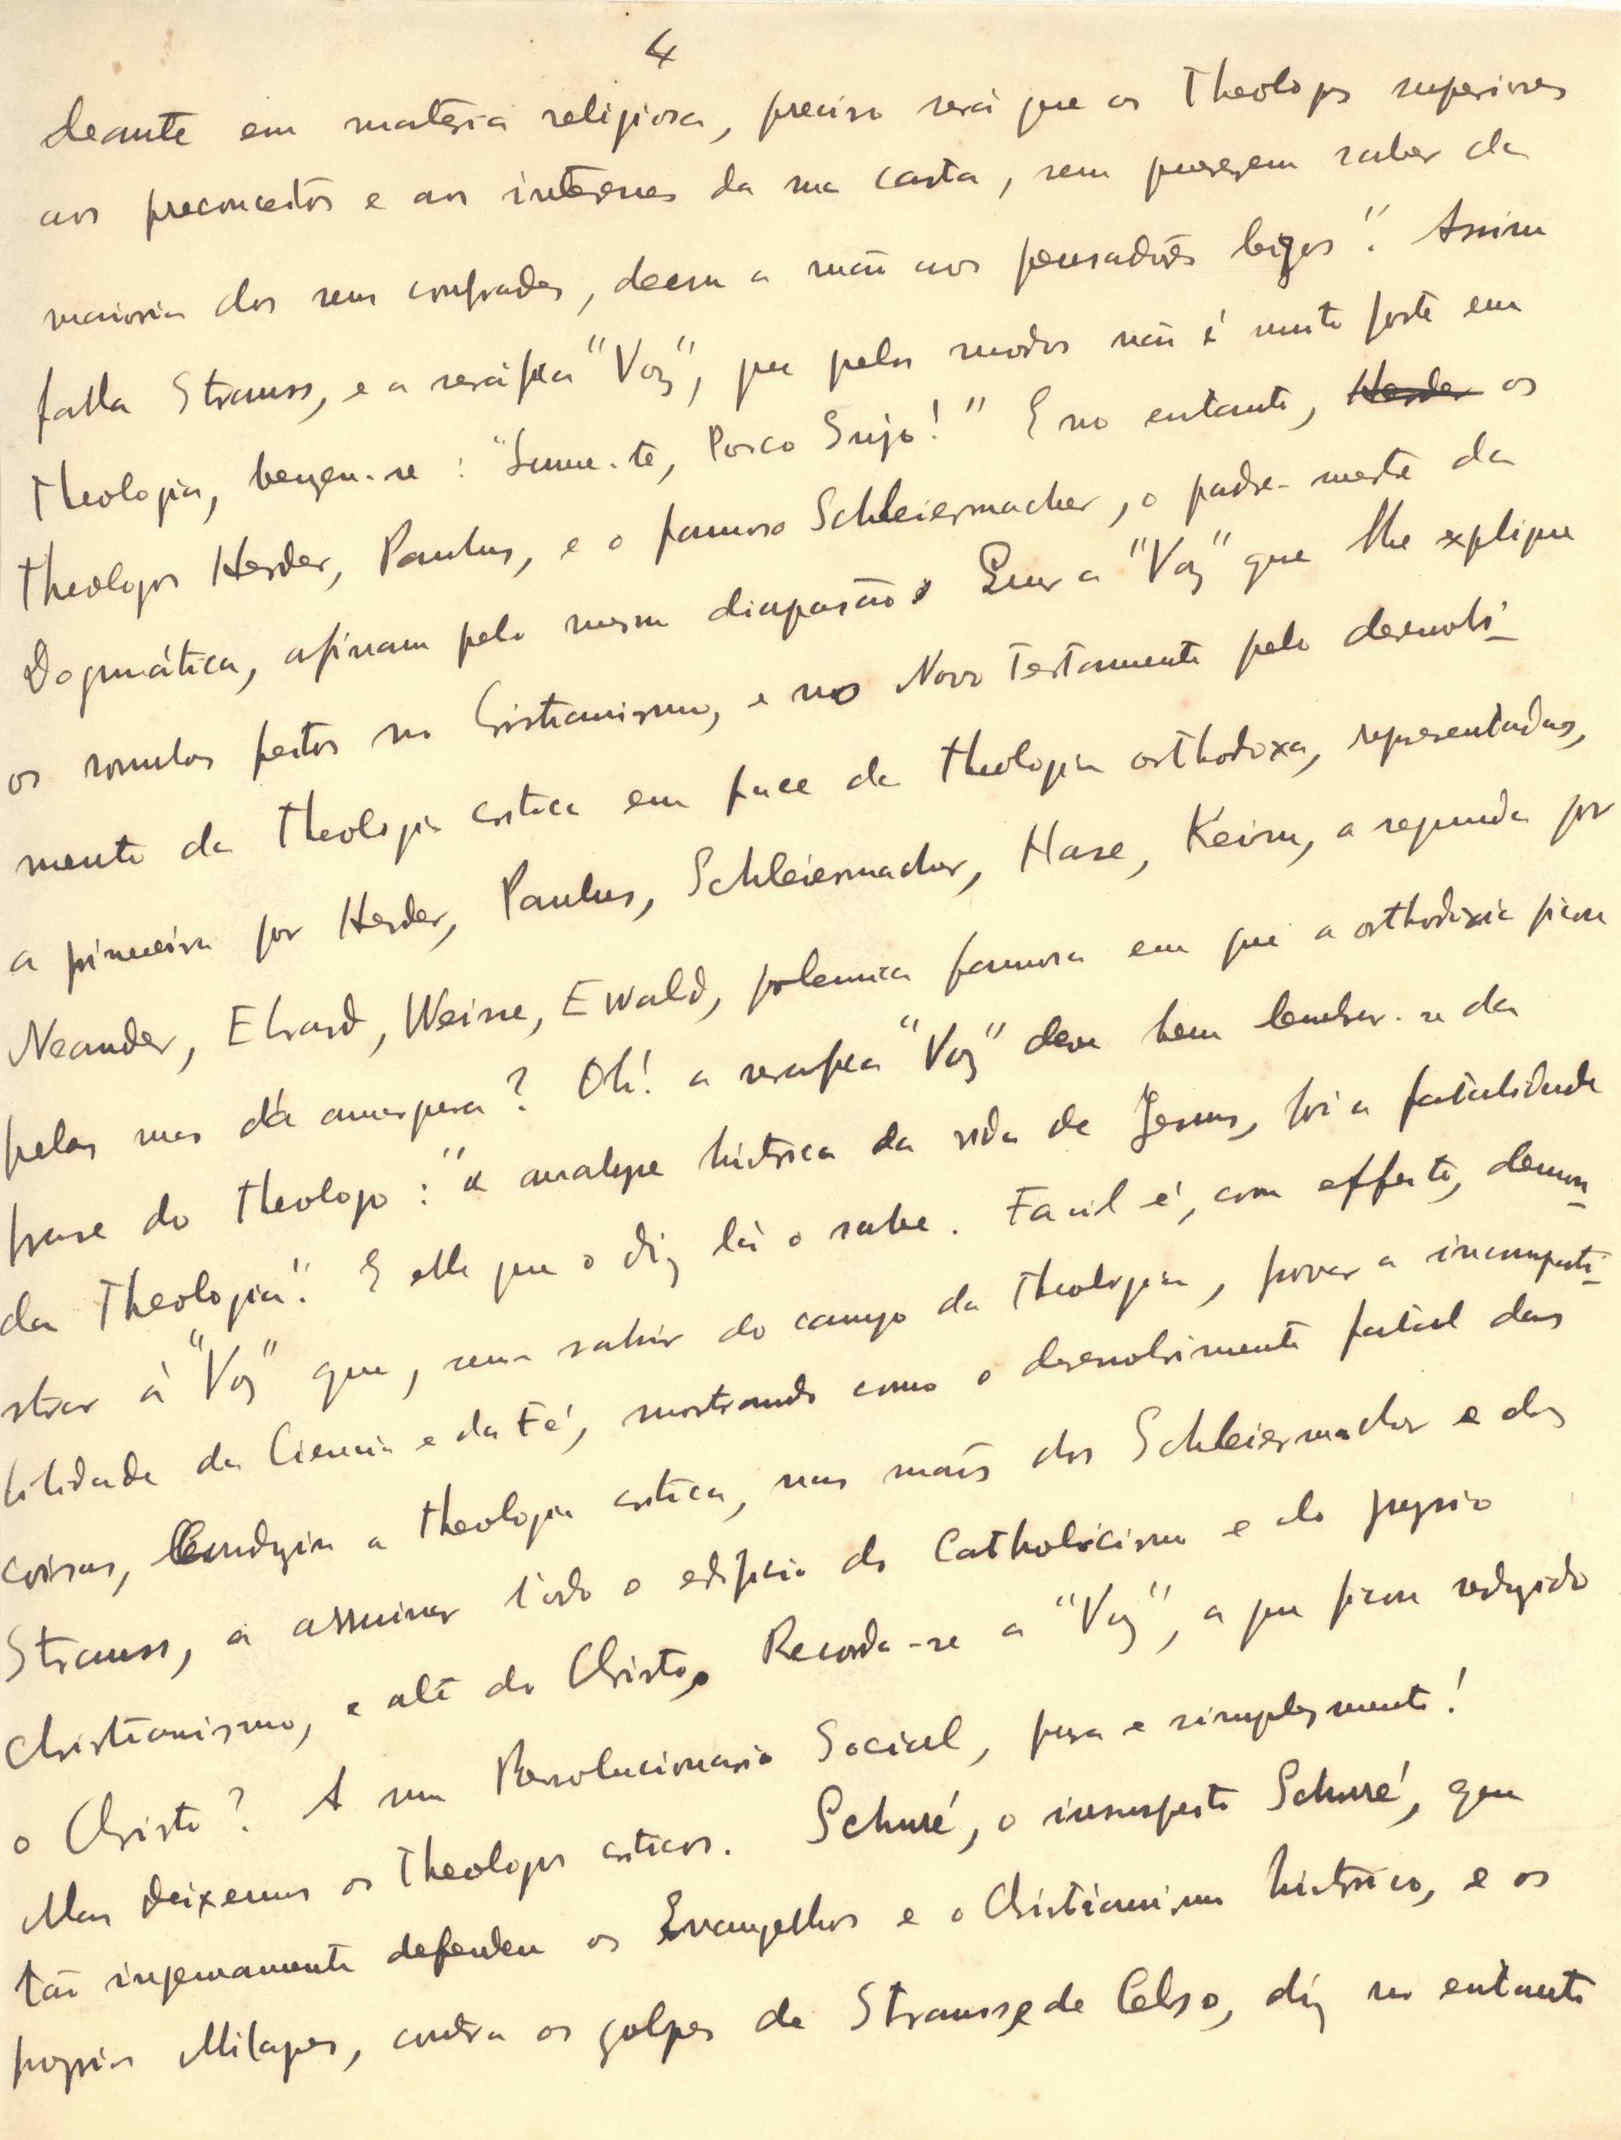 4
deante em materia religiosa, preciso será que os Theologos superiores
aos preconceitos e aos interesses da sua casta, sem quererem saber da
maioria dos seus confrades, deem a mão aos pensadores leigos". Assim
falla Strauss, e a seráfica "Voz", que pelos modos não é muito forte em
Theologia, benzeu-se: "Sume-te, Porco Sujo!" E no entanto, Herder os
Theologos Herder, Paulus, e o famoso Schleiermacher, o padre-mestre da
Dogmática, afinam pelo mesmo diapasão. Quer a "Voz" que lhe explique
os rombos feitos no Cristianismo, e no Novo Testamento pelo desenvolvi-
mento da Theologia critica em face da Theologia orthodoxa, representadas,
a primeira por Herder, Paulus, Schleiermacher, Hase, Keim, a segunda por
Neander, Ebrard, Weisse, Ewald, polemica famosa em que a orthodoxia ficou
pelas ruas da amargura? Oh! a serafica "Voz" deve bem lembrar-se da
frase do Theologo: "a analyse historica da vida de Jesus, foi a fatalidade
da Theologia". E elle que o diz lá o sabe. Facil é, com effeito, demon-
strar á "Voz" que, sem sahir do campo da Theologia, provar a incompati-
bilidade da Ciencia e da Fé, mostrando como o desenvolvimento fatal das
coisas, conduzia a Theologia critica, nas mãos dos Schleiermacher e dos
Strauss, a arruinar todo o edificio do Catholicismo e do proprio
Christianismo, e até do Christo. Recorda-se a "Voz", a que ficou reduzido
o Christo? A um Revolucionario Social, pura e simplesmente!
Mas deixemos os Theologos criticos. Schuré, o insuspeito Schuré, que
tão ingenuamente defendeu os Evangelhos e o Christianismo historico, e os
proprios Milagres, contra os golpes de Strauss, e de Celso, diz no entanto